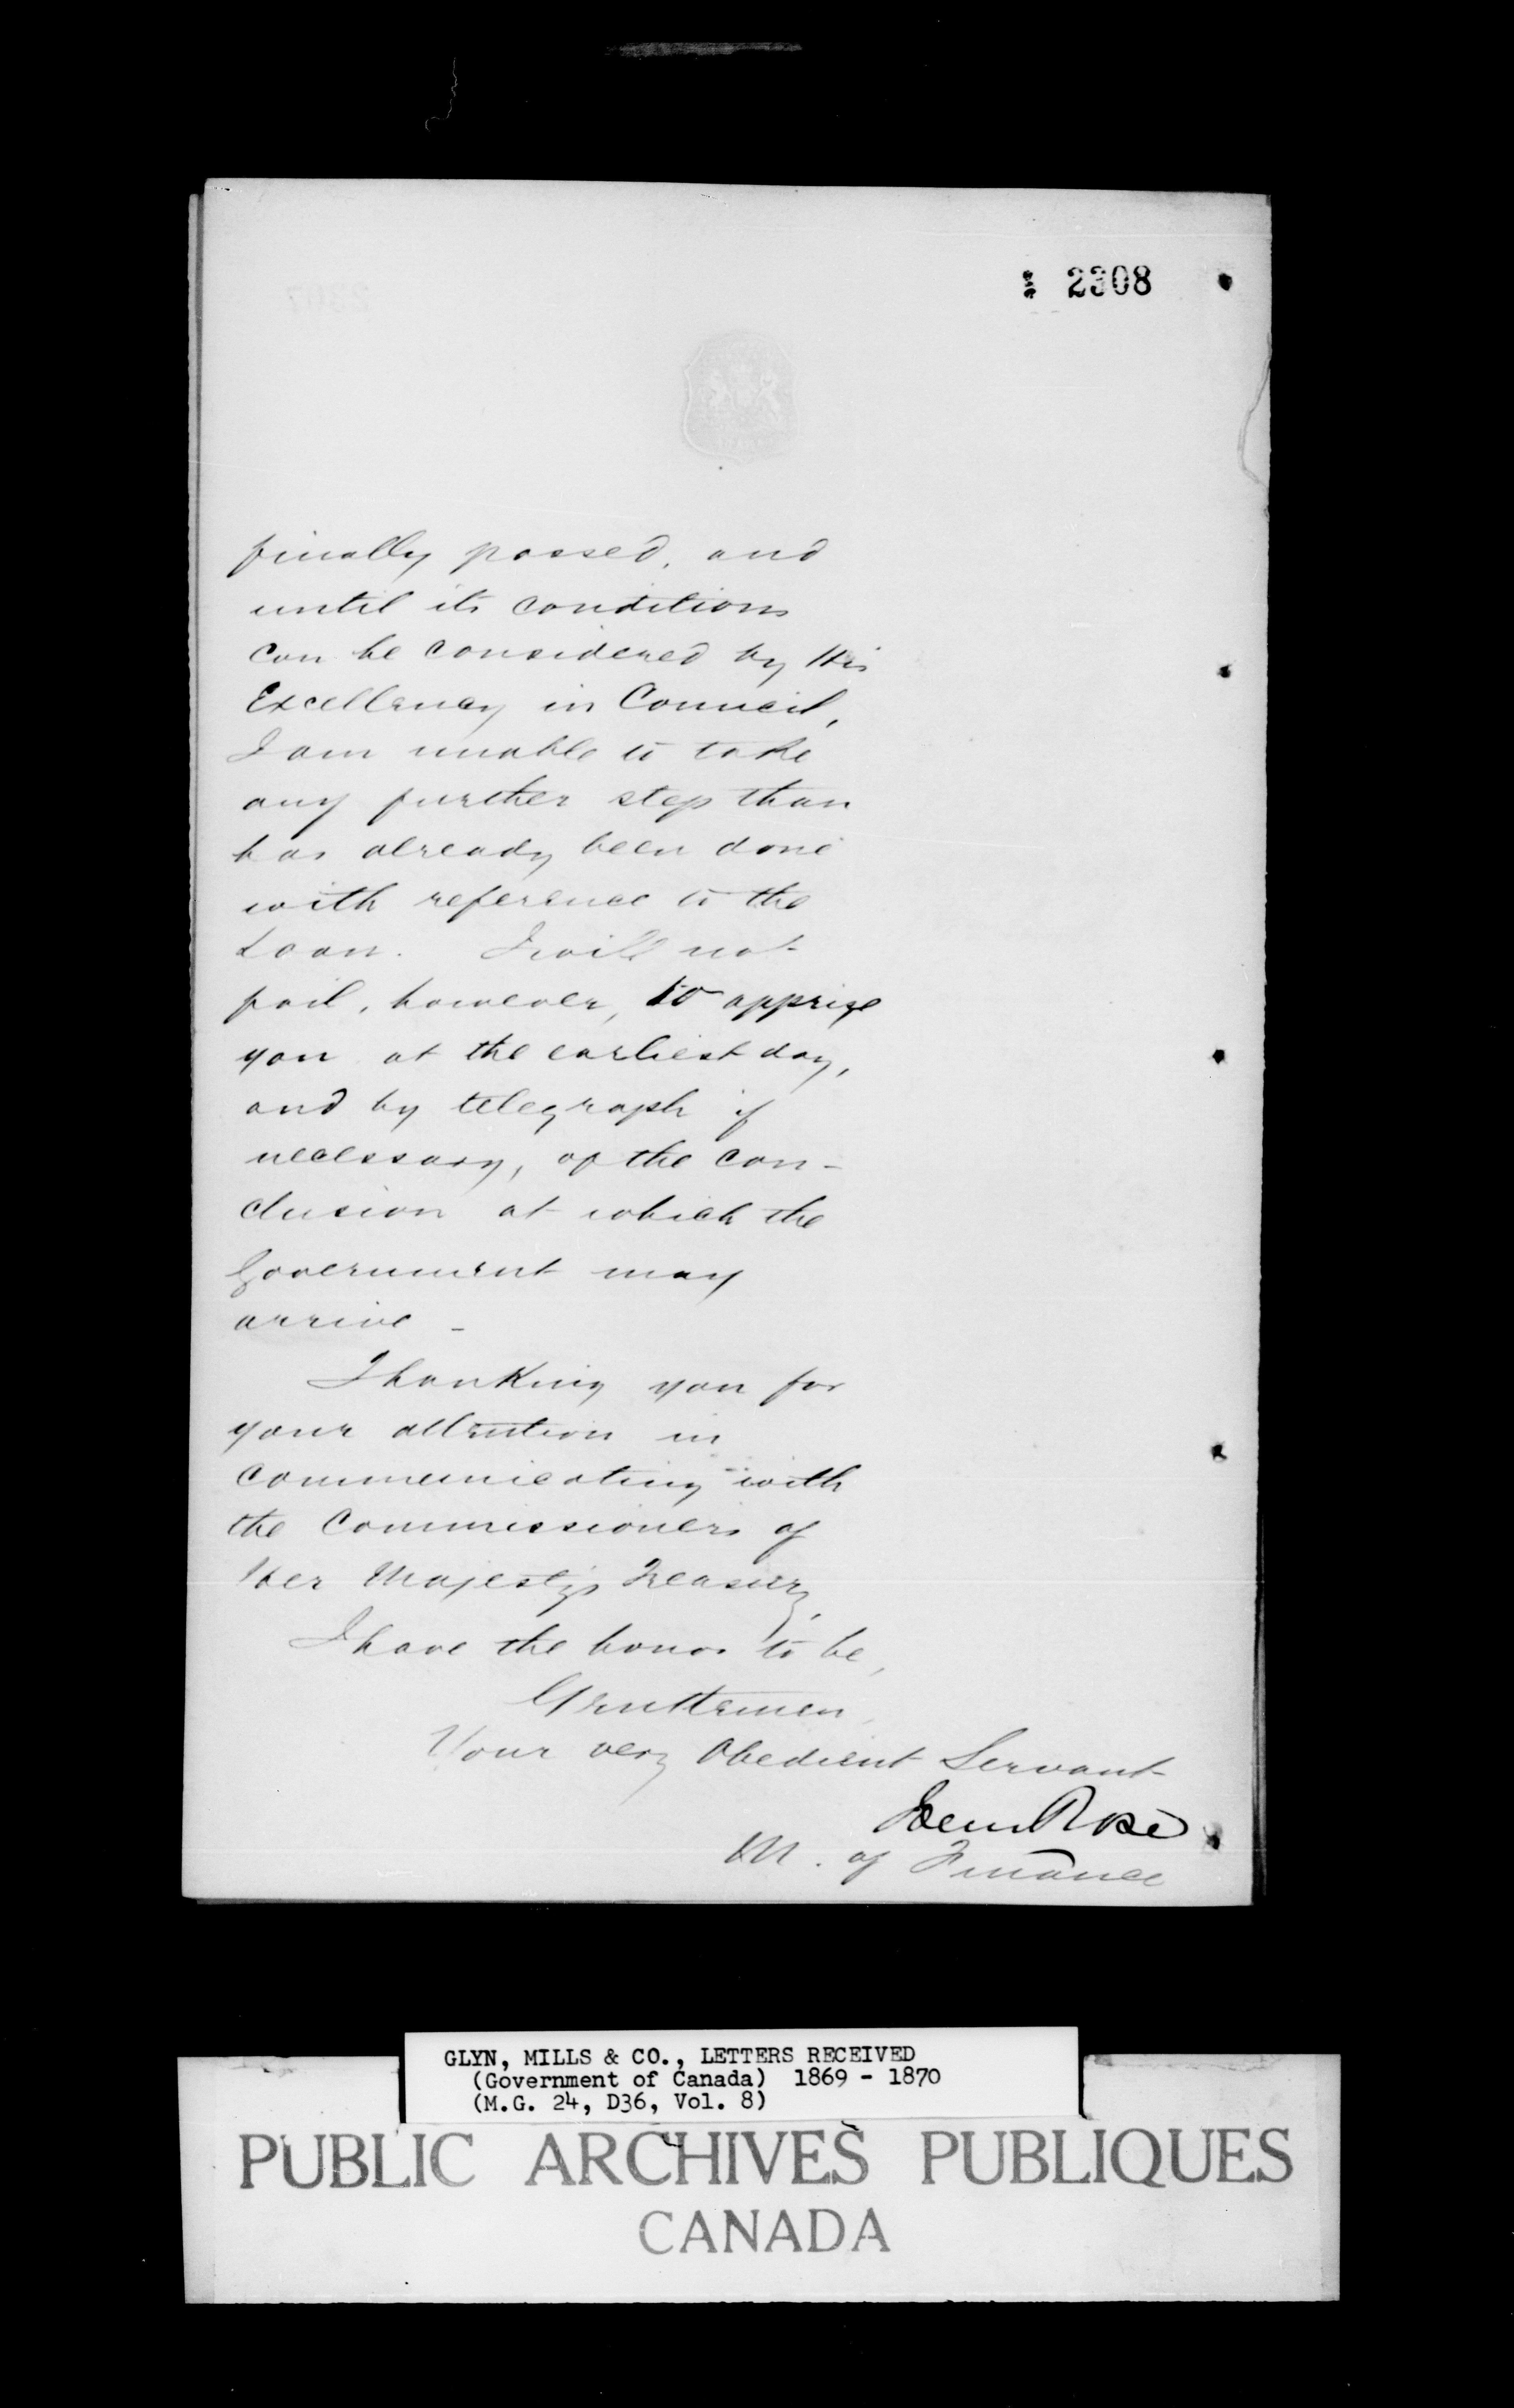 2308
finally passed, and
until its conditions
can be considered by His
Excellency in Council,
I am unable to take
any further step than
has already been done
with reference to the
Loan. I will not
fail, however, to apprize
you at the earliest day,
and by telegraph if
necessary, of the con-
clusion at which the
Government may
arrive -
Thanking you for
your attention in
communicating with
the Commissioners of
Her Majesty's Treasury,
I have the honor to be,
Gentlemen,
Your very Obedient Servant
John Rose
M. of Finance
GLYN, MILLS & CO., LETTERS RECEIVED
(Government of Canada) 1869 - 1870
(M.G. 24, D36, Vol. 8)
PUBLIC ARCHIVES PUBLIQUES
CANADA